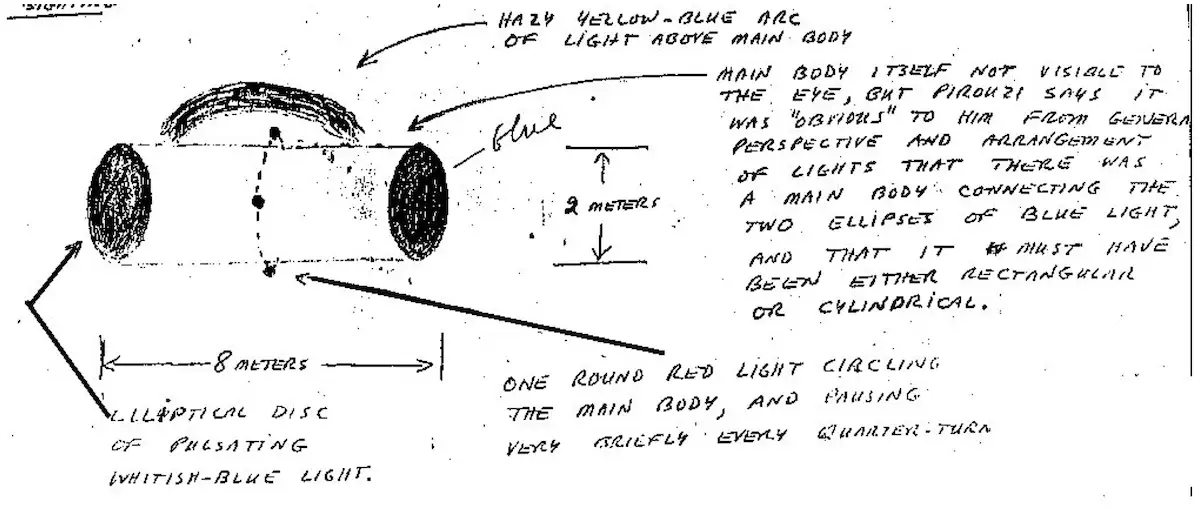 SIGHTING
HAZY YELLOW-BLUE ARC
OF LIGHT ABOVE MAIN BODY
MAIN BODY ITSELF NOT VISIBLE TO
THE EYE, BUT PIROUZI SAYS IT
WAS "OBVIOUS" TO HIM FROM GENERA
PERSPECTIVE AND ARRANGEMENT
OF LIGHTS THAT THERE WAS
A MAIN BODY CONNECTING THE
TWO ELLIPSES OF BLUE LIGHT,
AND THAT IT MUST HAVE
BEEN EITHER RECTANGULAR
OR CYLINDRICAL.
Blue
2 METERS
8 METERS
ONE ROUND RED LIGHT CIRCLING
THE MAIN BODY, AND PAUSING
VERY BRIEFLY EVERY QUARTER-TURN
ELLIPTICAL DISC
OF PULSATING
WHITISH-BLUE LIGHT.